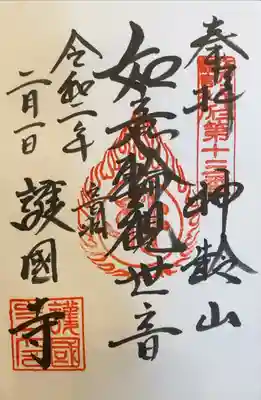 奉拝 神齢山
第十三番
如意輪観世音
音羽
護國寺
令和二年
二月一日
護國